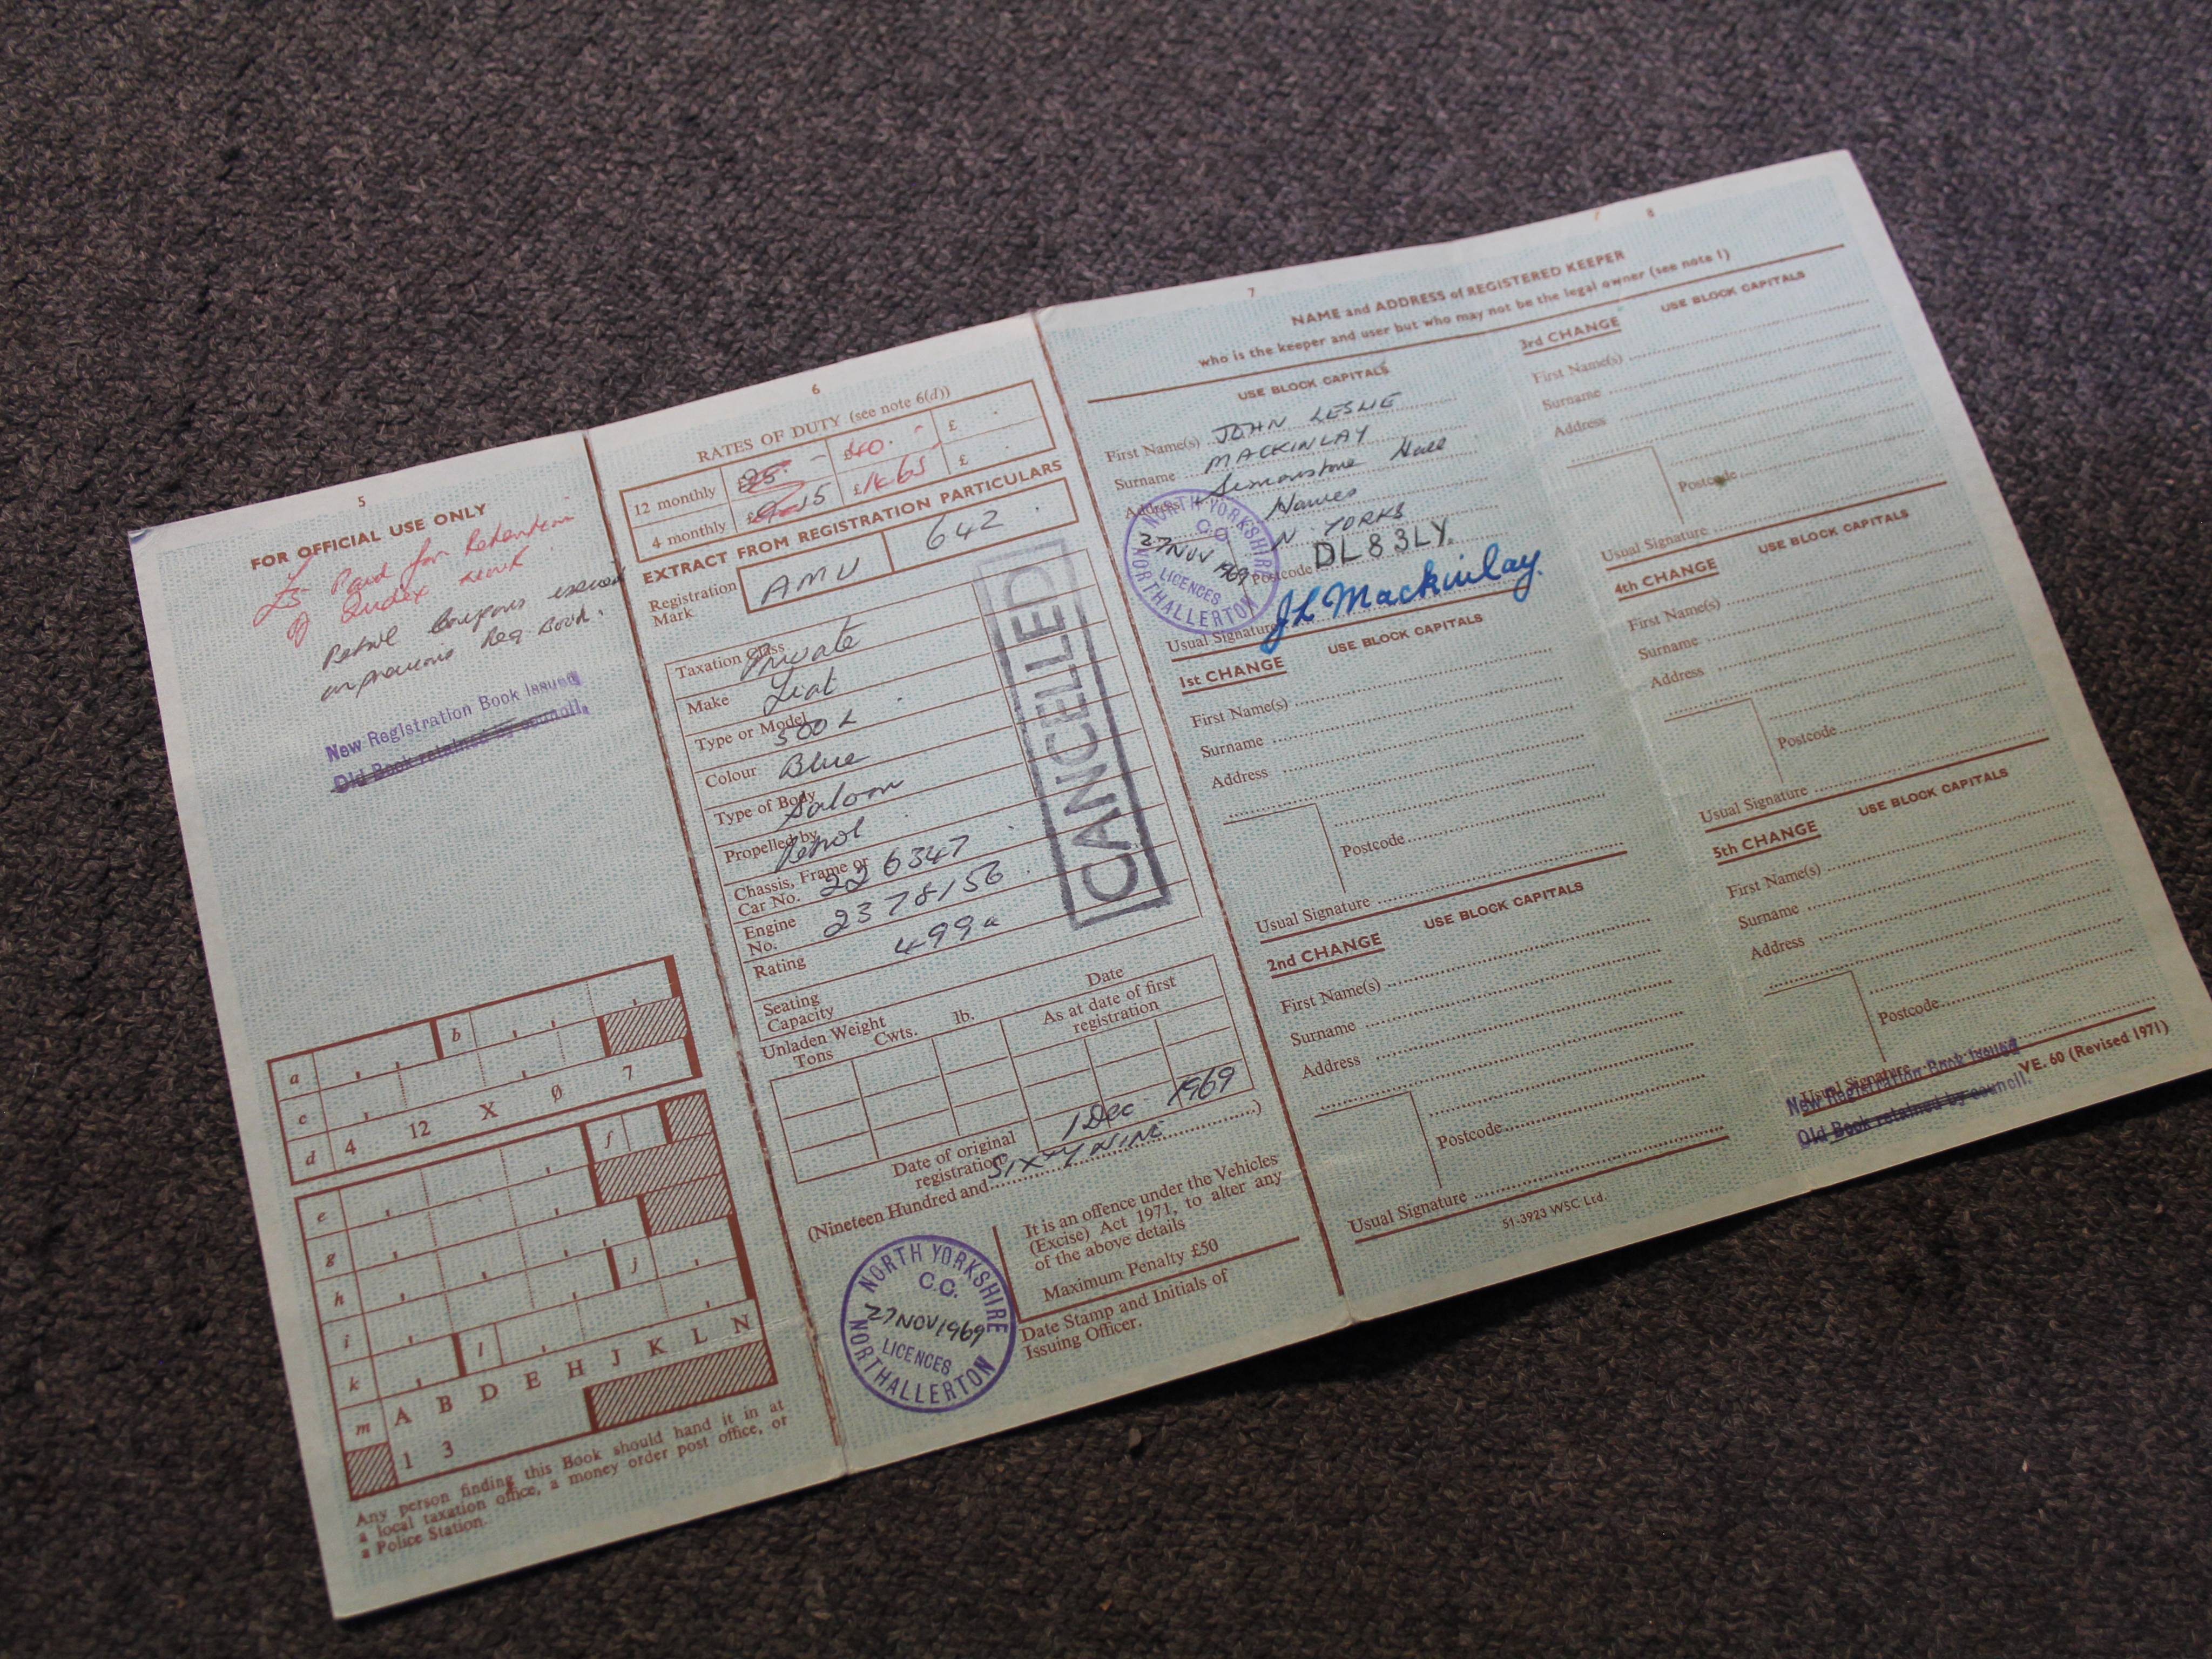 5
FOR OFFICIAL USE ONLY
£5 Paid for Retention
of Index mark
Petrol Coupons issued
on previous Reg. Book.
New Registration Book Issued
Old Book retained by council.
a b
c
d 4 12 X Ø 7
e f
g
h
i j
k l
m A B D E H J K L N
1 3
Any person finding this Book should hand it in at
a local taxation office, a money order post office, or
a Police Station.
6
RATES OF DUTY (see note 6(d))
12 monthly £25. - £40. - £
4 monthly £9.15 £14.65 £
EXTRACT FROM REGISTRATION PARTICULARS
Registration
Mark
AMU 642
Taxation Class Private
Make Fiat
Type or Model 500 L
Colour Blue
Type of Body Saloon
Propelled by Petrol
Chassis, Frame or
Car No. 226347
Engine
No. 2378156
Rating 499
Seating
Capacity
CANCELLED
Unladen Weight Date
Tons Cwts. lb. As at date of first
registration
Date of original
registration 1 Dec 1969
(Nineteen Hundred and SIXTY NINE )
It is an offence under the Vehicles
(Excise) Act 1971, to alter any
of the above details
Maximum Penalty £50
Date Stamp and Initials of
Issuing Officer.
NORTH YORKSHIRE
C.C.
27 NOV 1969
LICENCES
NORTHALLERTON
7 8
NAME and ADDRESS of REGISTERED KEEPER
who is the keeper and user but who may not be the legal owner (see note 1)
USE BLOCK CAPITALS
First Name(s) JOHN LESLIE
Surname MACKINLAY
Address Simonstone Hall
Hawes
N. YORKS
Postcode DL8 3LY.
Usual Signature J L Mackinlay.
NORTH YORKSHIRE
C.C.
27 NOV 1969
LICENCES
NORTHALLERTON
1st CHANGE USE BLOCK CAPITALS
First Name(s)
Surname
Address
Postcode
Usual Signature
2nd CHANGE USE BLOCK CAPITALS
First Name(s)
Surname
Address
Postcode
Usual Signature
51-3923 WSC Ltd.
3rd CHANGE USE BLOCK CAPITALS
First Name(s)
Surname
Address
Postcode
Usual Signature
4th CHANGE USE BLOCK CAPITALS
First Name(s)
Surname
Address
Postcode
Usual Signature
5th CHANGE USE BLOCK CAPITALS
First Name(s)
Surname
Address
Postcode
Usual Signature
New Registration Book Issued
Old Book retained by council.
VE. 60 (Revised 1971)